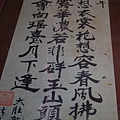 想衣裳花想容春風拂
露華濃若非群玉山頭
會向瑤臺月下逢